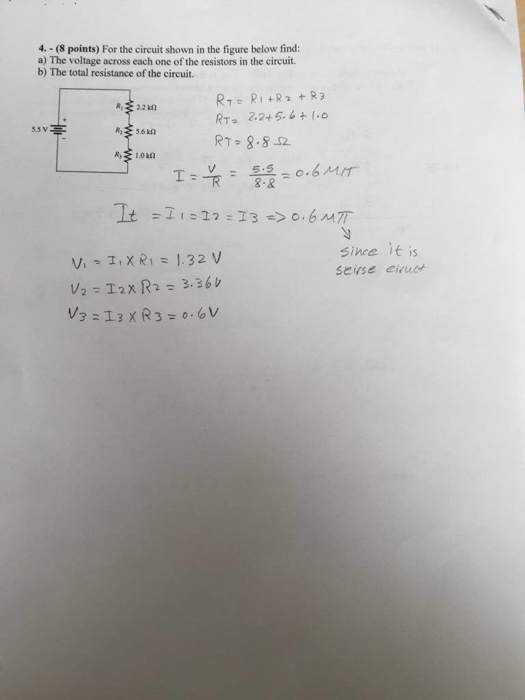 4. - (8 points) For the circuit shown in the figure below find:
a) The voltage across each one of the resistors in the circuit.
b) The total resistance of the circuit.
R₁ 2.2 kΩ
R₂ 5.6 kΩ
R₃ 1.0 kΩ
5.5 V
RT = R1 + R2 + R3
RT = 2.2+5.6+1.0
RT = 8.8 Ω
I = V/R = 5.5/8.8 = 0.6
It = I1 = I2 = I3 => 0.6
since it is
seirse ciruct
V₁ = I₁ X R1 = 1.32 V
V2 = I2 X R2 = 3.36V
V3 = I3 X R3 = 0.6V